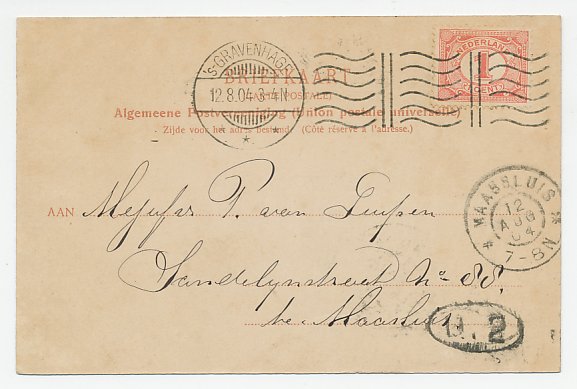 'S-GRAVENHAGE
12.8.04 3-4N
NEDERLAND
1
CENT
BRIEFKAART
Algemeene Postvereeniging (Union postale universelle)
Zijde voor het adres bestemd. (Côté réservé à l'adresse.)
MAASSLUIS
12
AUG
04
7-8N
AAN Mejufar P. van
Sandelynstreet No 88.
te Maasluis
2